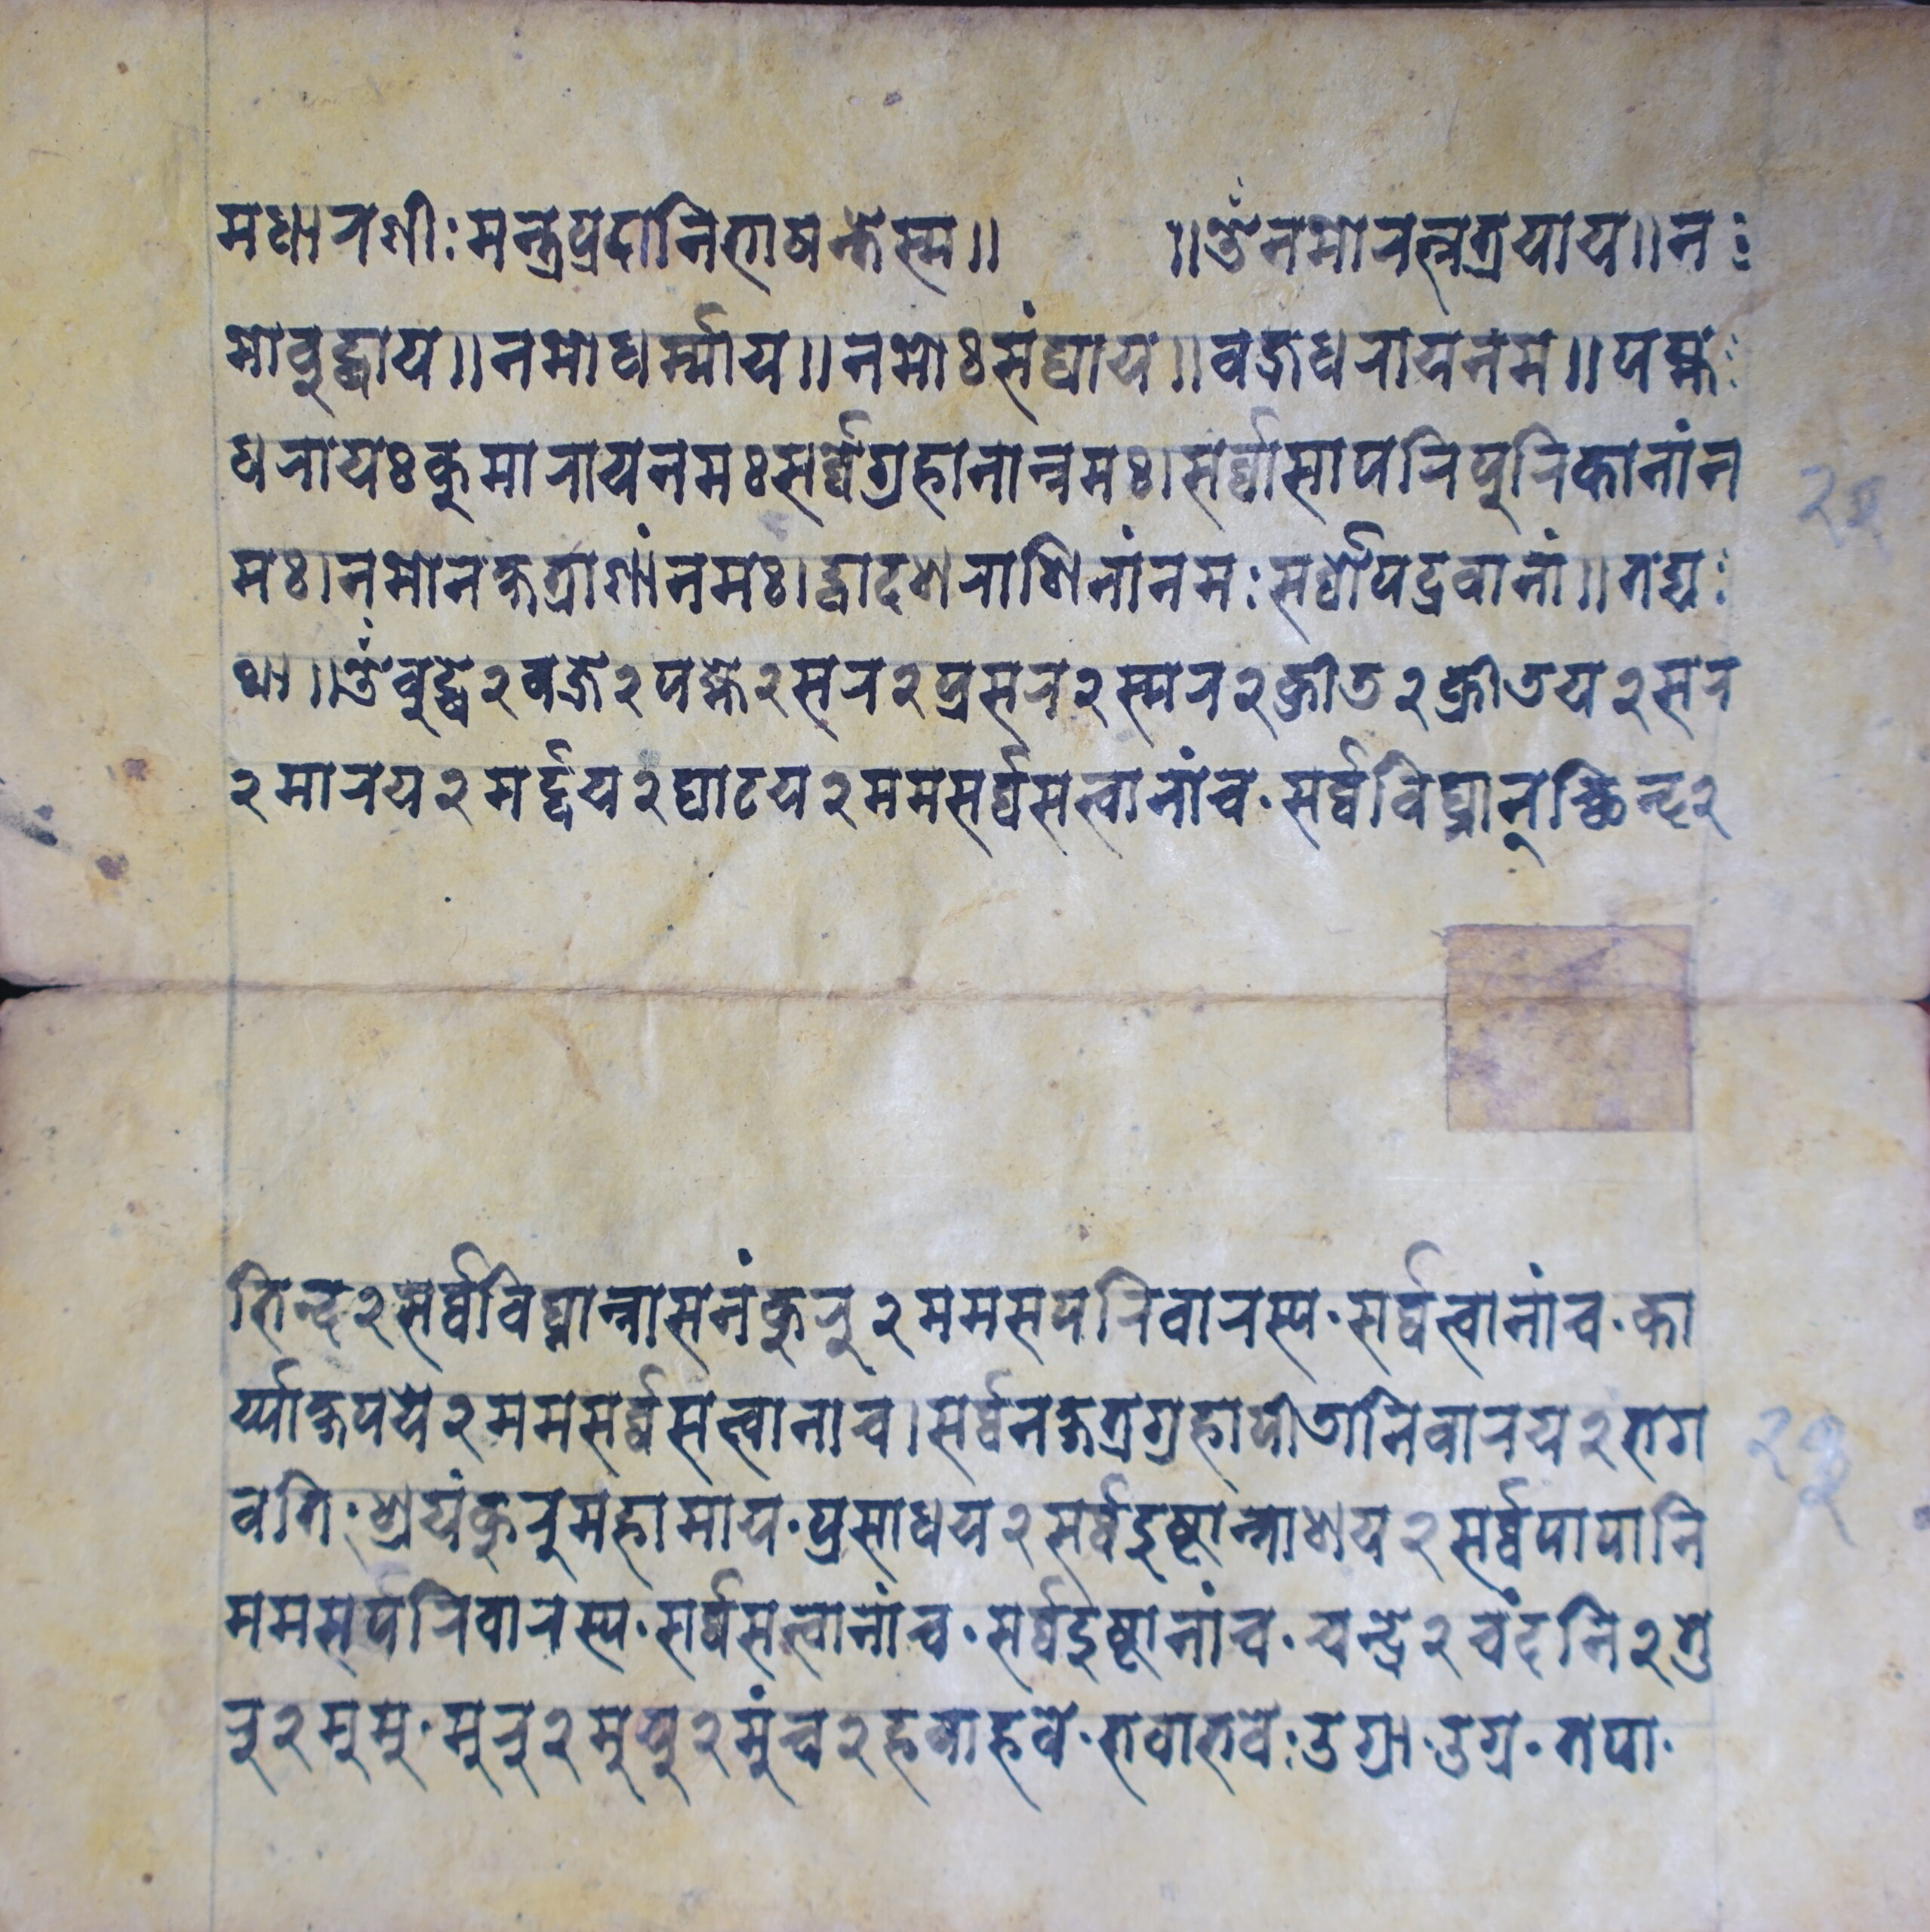 मधारणीःमन्त्रप्रदानिभाषन्तेस्म॥ ॥ॐनमोरत्नत्रयाय॥नः
मोबुद्धाय॥नमोधर्म्माय॥नमोःसंघाय॥वज्रधरायनम॥पद्मः
धरायःकुमारायनमःसर्व्वेग्रहानान्नमः।सर्व्वासापरिपुरिकानांन
मः।नमोनक्षत्राणांनमः।द्वादशराशिनांनमःसर्व्वोपद्रवानां॥तद्यः
था॥ॐबुद्धे२वज्रे२पद्मे२सर२प्रसर२स्मर२क्रीड२क्रीडय२सर
२मारय२मर्द्दय२घाटय२ममसर्व्वसत्वानांच·सर्व्वविघ्नान्च्छिन्द२
भिन्द२सर्व्वविघ्नान्नासनंकुरु२ममसपरिवारस्य·सर्व्वत्वानांच·का
र्य्याक्षपये२ममसर्व्वसत्वानांच।सर्व्वनक्षत्रग्रहापीडानिवारय२भग
वति·श्रयंकुरुमहामाय·प्रसाधय२सर्व्वदुष्टान्नाशय२सर्व्वपापानि
ममसर्परिवारस्य·सर्व्वसत्वानांच·सर्व्वदुष्टानांच·चन्द्रे२चंदनि२शु
रु२मुमु·मुरु२मुयु२मुंच२हवाहवे·भवाभवेःउग्रा·उग्र·तपा·
२२
२३